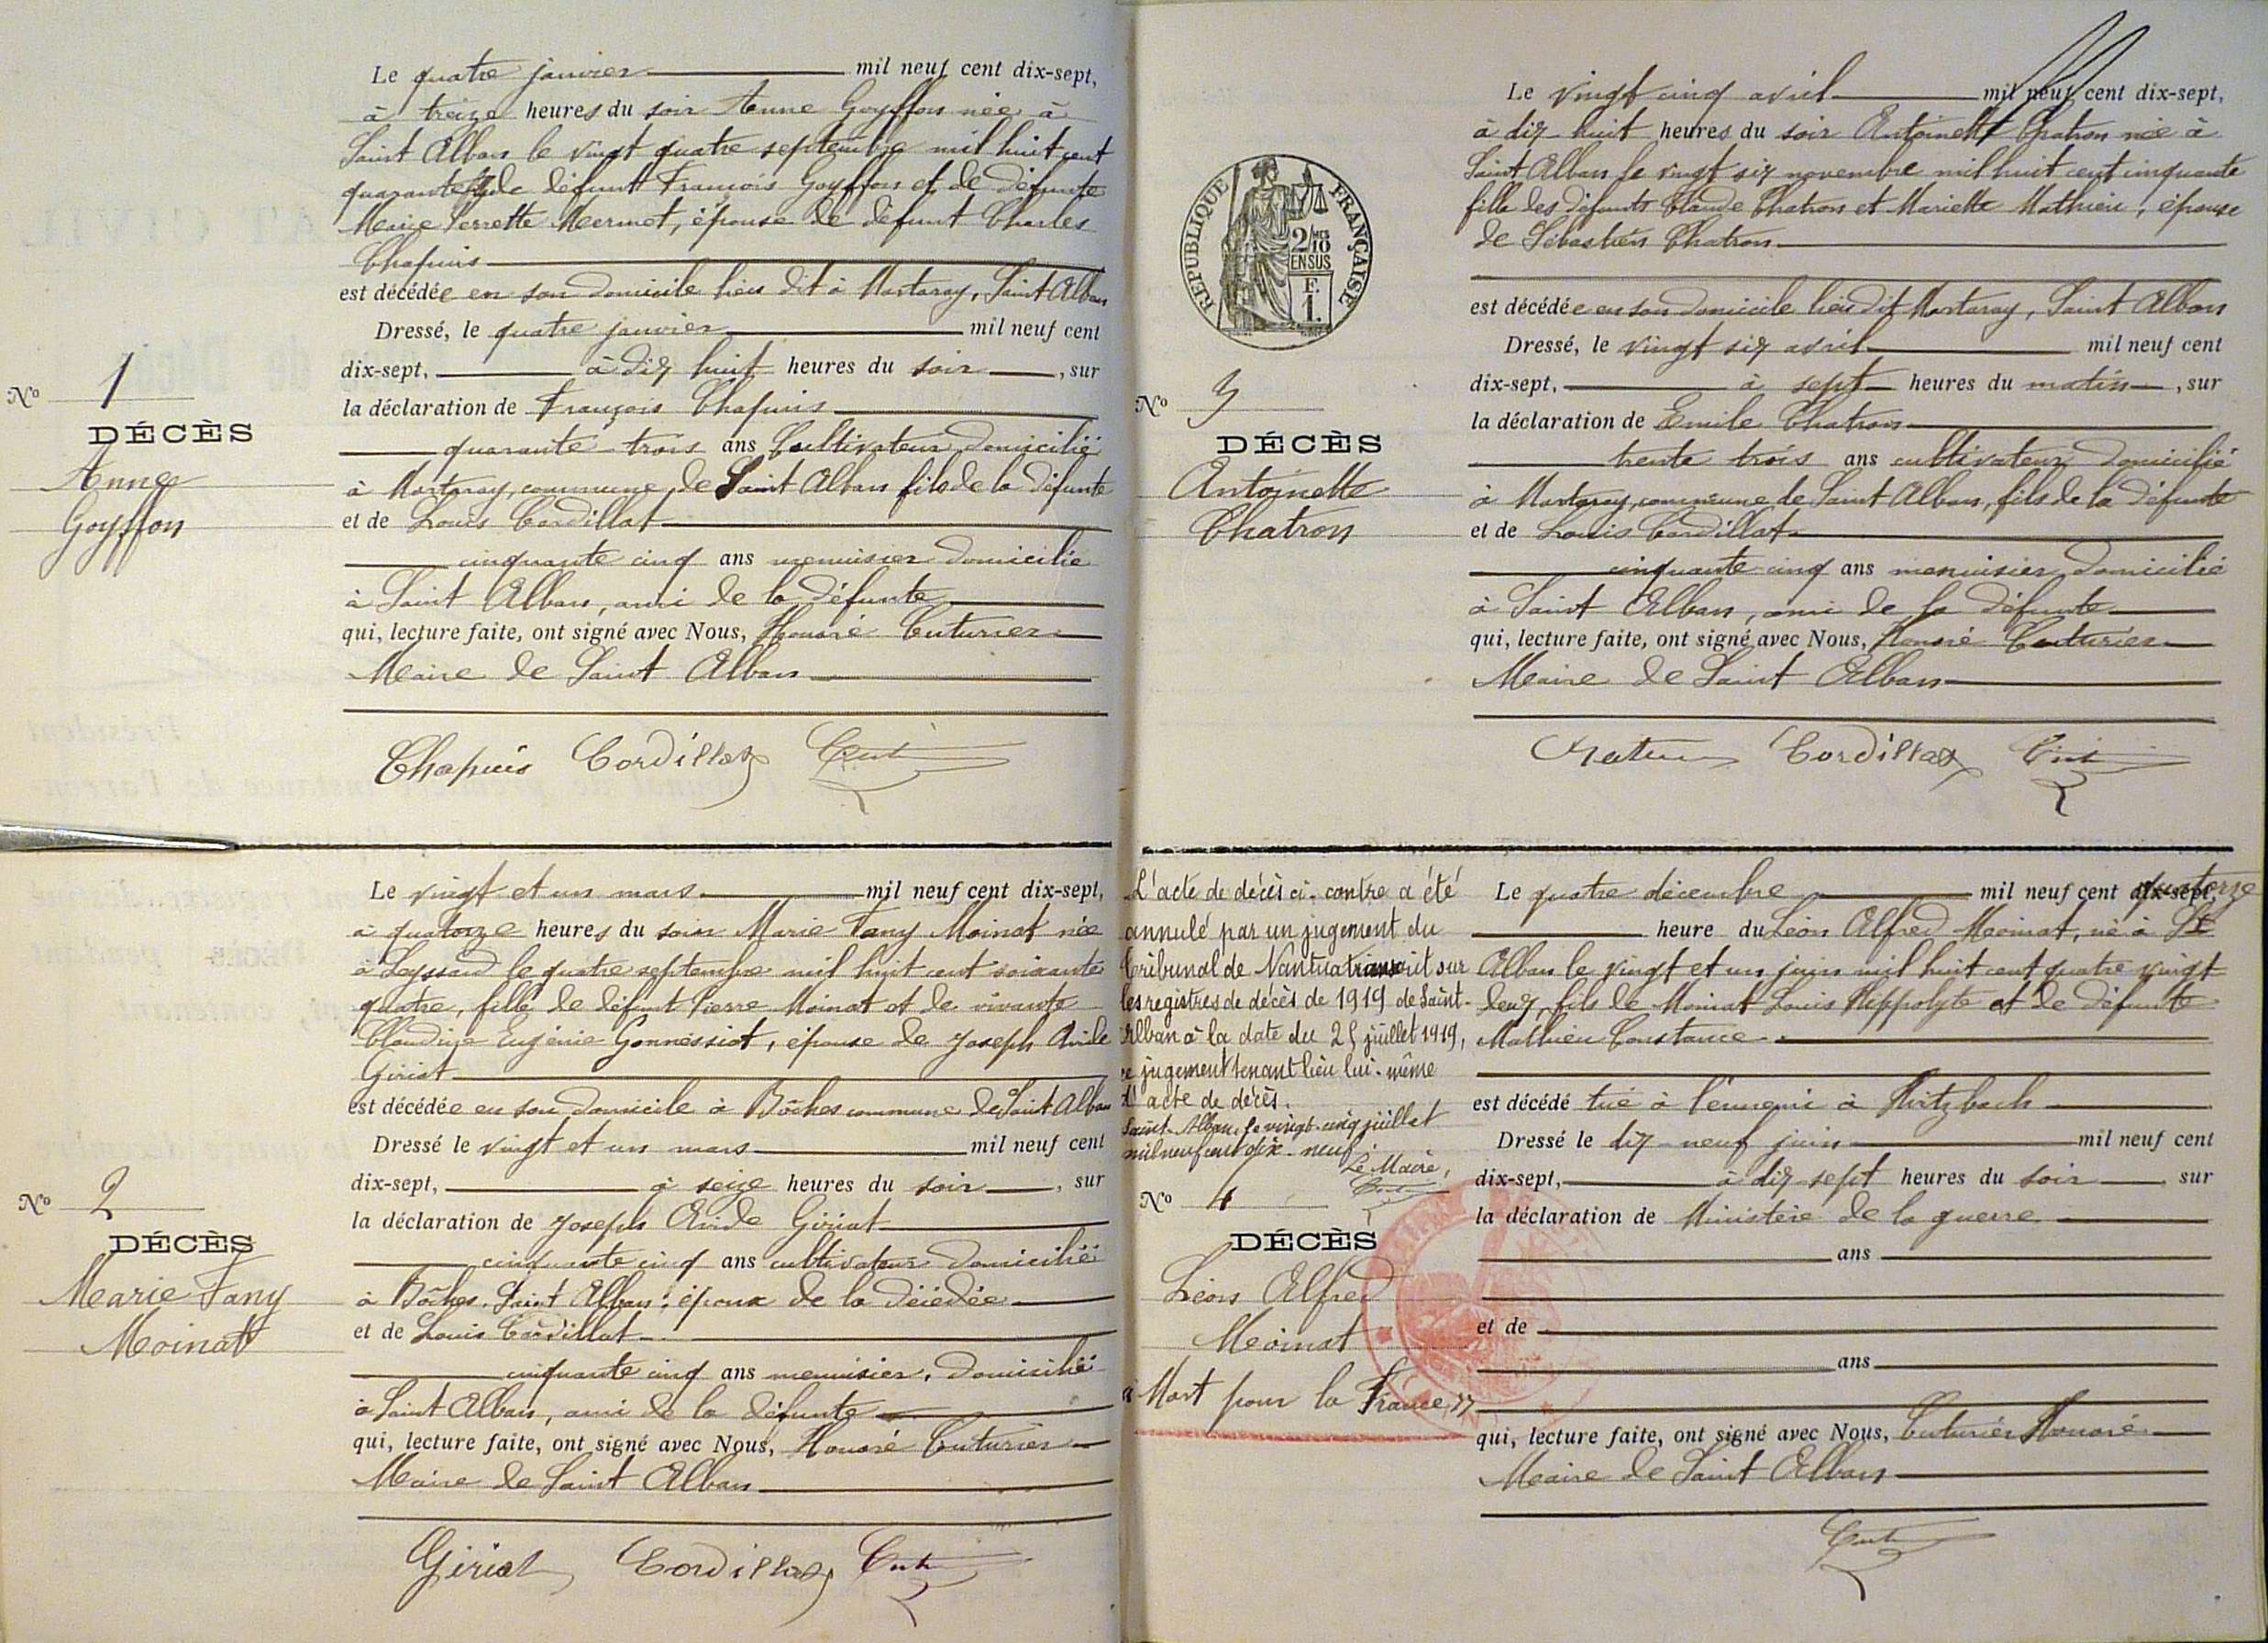 Le quatre janvier mil neuf cent dix-sept,
à treize heures du soir Anne Goyffon née à
Saint Alban le vingt quatre septembre mil huit cent
quarante de défunt François Goyffon et de défunte
Marie Perrette Mermet, épouse de défunt Charles
Chapuis
est décédée en son domicile lieu dit à Mortaray, Saint Alban
Dressé, le quatre janvier mil neuf cent
dix-sept, à dix huit heures du soir, sur
la déclaration de François Chapuis
quarante-trois ans Cultivateur domicilié
à Mortaray, commune de Saint Alban fils de la défunte
et de Louis Cordillat
cinquante cinq ans menuisier domicilié
à Saint Alban, ami de la défunte
qui, lecture faite, ont signé avec Nous, Honoré Cuturier
Maire de Saint Alban
Chapuis Cordillat
No 1
DÉCÈS
Anne
Goyffon
Le vingt et un mars mil neuf cent dix-sept,
à quatorze heures du soir Marie Fany Moinat née
à Leyssard le quatre septembre mil huit cent soixante
quatre, fille de défunt Pierre Moinat et de vivante
Claudine Eugénie Gonnessiat, épouse de Joseph Avide
Giriat
est décédée en son domicile à Bôches commune de Saint Alban
Dressé le vingt et un mars mil neuf cent
dix-sept, à seize heures du soir, sur
la déclaration de Joseph Avide Giriat
cinquante cinq ans cultivateur domicilié
à Bôches, Saint Alban, époux de la décédée
et de Louis Cordillat
cinquante cinq ans menuisier, domicilié
à Saint Alban, ami de la défunte
qui, lecture faite, ont signé avec Nous, Honoré Cuturier
Maire de Saint Alban
Giriat Cordillat
No 2
DÉCÈS
Marie Fany
Moinat
RÉPUBLIQUE FRANÇAISE
2/10 MES
EN SUS
F.
1.
Le vingt cinq avril mil neuf cent dix-sept,
à dix-huit heures du soir Antoinette Chatron née à
Saint Alban le vingt six novembre mil huit cent cinquante
fille des défunts Claude Chatron et Mariette Mathieu, épouse
de Sébastien Chatron
est décédée en son domicile lieu dit Mortaray, Saint Alban
Dressé, le vingt six avril mil neuf cent
dix-sept, à sept heures du matin, sur
la déclaration de Emile Chatron
trente trois ans cultivateur domicilié
à Mortaray, commune de Saint Alban, fils de la défunte
et de Louis Cordillat
cinquante-cinq ans menuisier, domicilié
à Saint Alban, ami de la défunte
qui, lecture faite, ont signé avec Nous, Honoré Cuturier
Maire de Saint Alban
Cordillat
No 3
DÉCÈS
Antoinette
Chatron
L'acte de décès ci-contre a été
annulé par un jugement du
tribunal de Nantua transcrit sur
les registres de décès de 1919 de Saint-
Alban à la date du 25 juillet 1919,
ce jugement tenant lieu lui-même
d'acte de décès.
Saint-Alban, le vingt-cinq juillet
mil neuf cent dix-neuf.
Le Maire,
No 4
DÉCÈS
Léon Alfred
Moinat
"Mort pour la France"
Le quatre décembre mil neuf cent dix-sept, quatorze
heure du Léon Alfred Moinat, né à St
Alban le vingt et un juin mil huit cent quatre vingt
deux, fils de Moinat Louis Hippolyte et de défunte
Mathieu Constance
est décédé tué à l'ennemi à
Dressé le dix-neuf juin mil neuf cent
dix-sept, à dix sept heures du soir, sur
la déclaration de Ministère de la guerre
ans
et de
ans
qui, lecture faite, ont signé avec Nous, Cuturier Honoré
Maire de Saint Alban